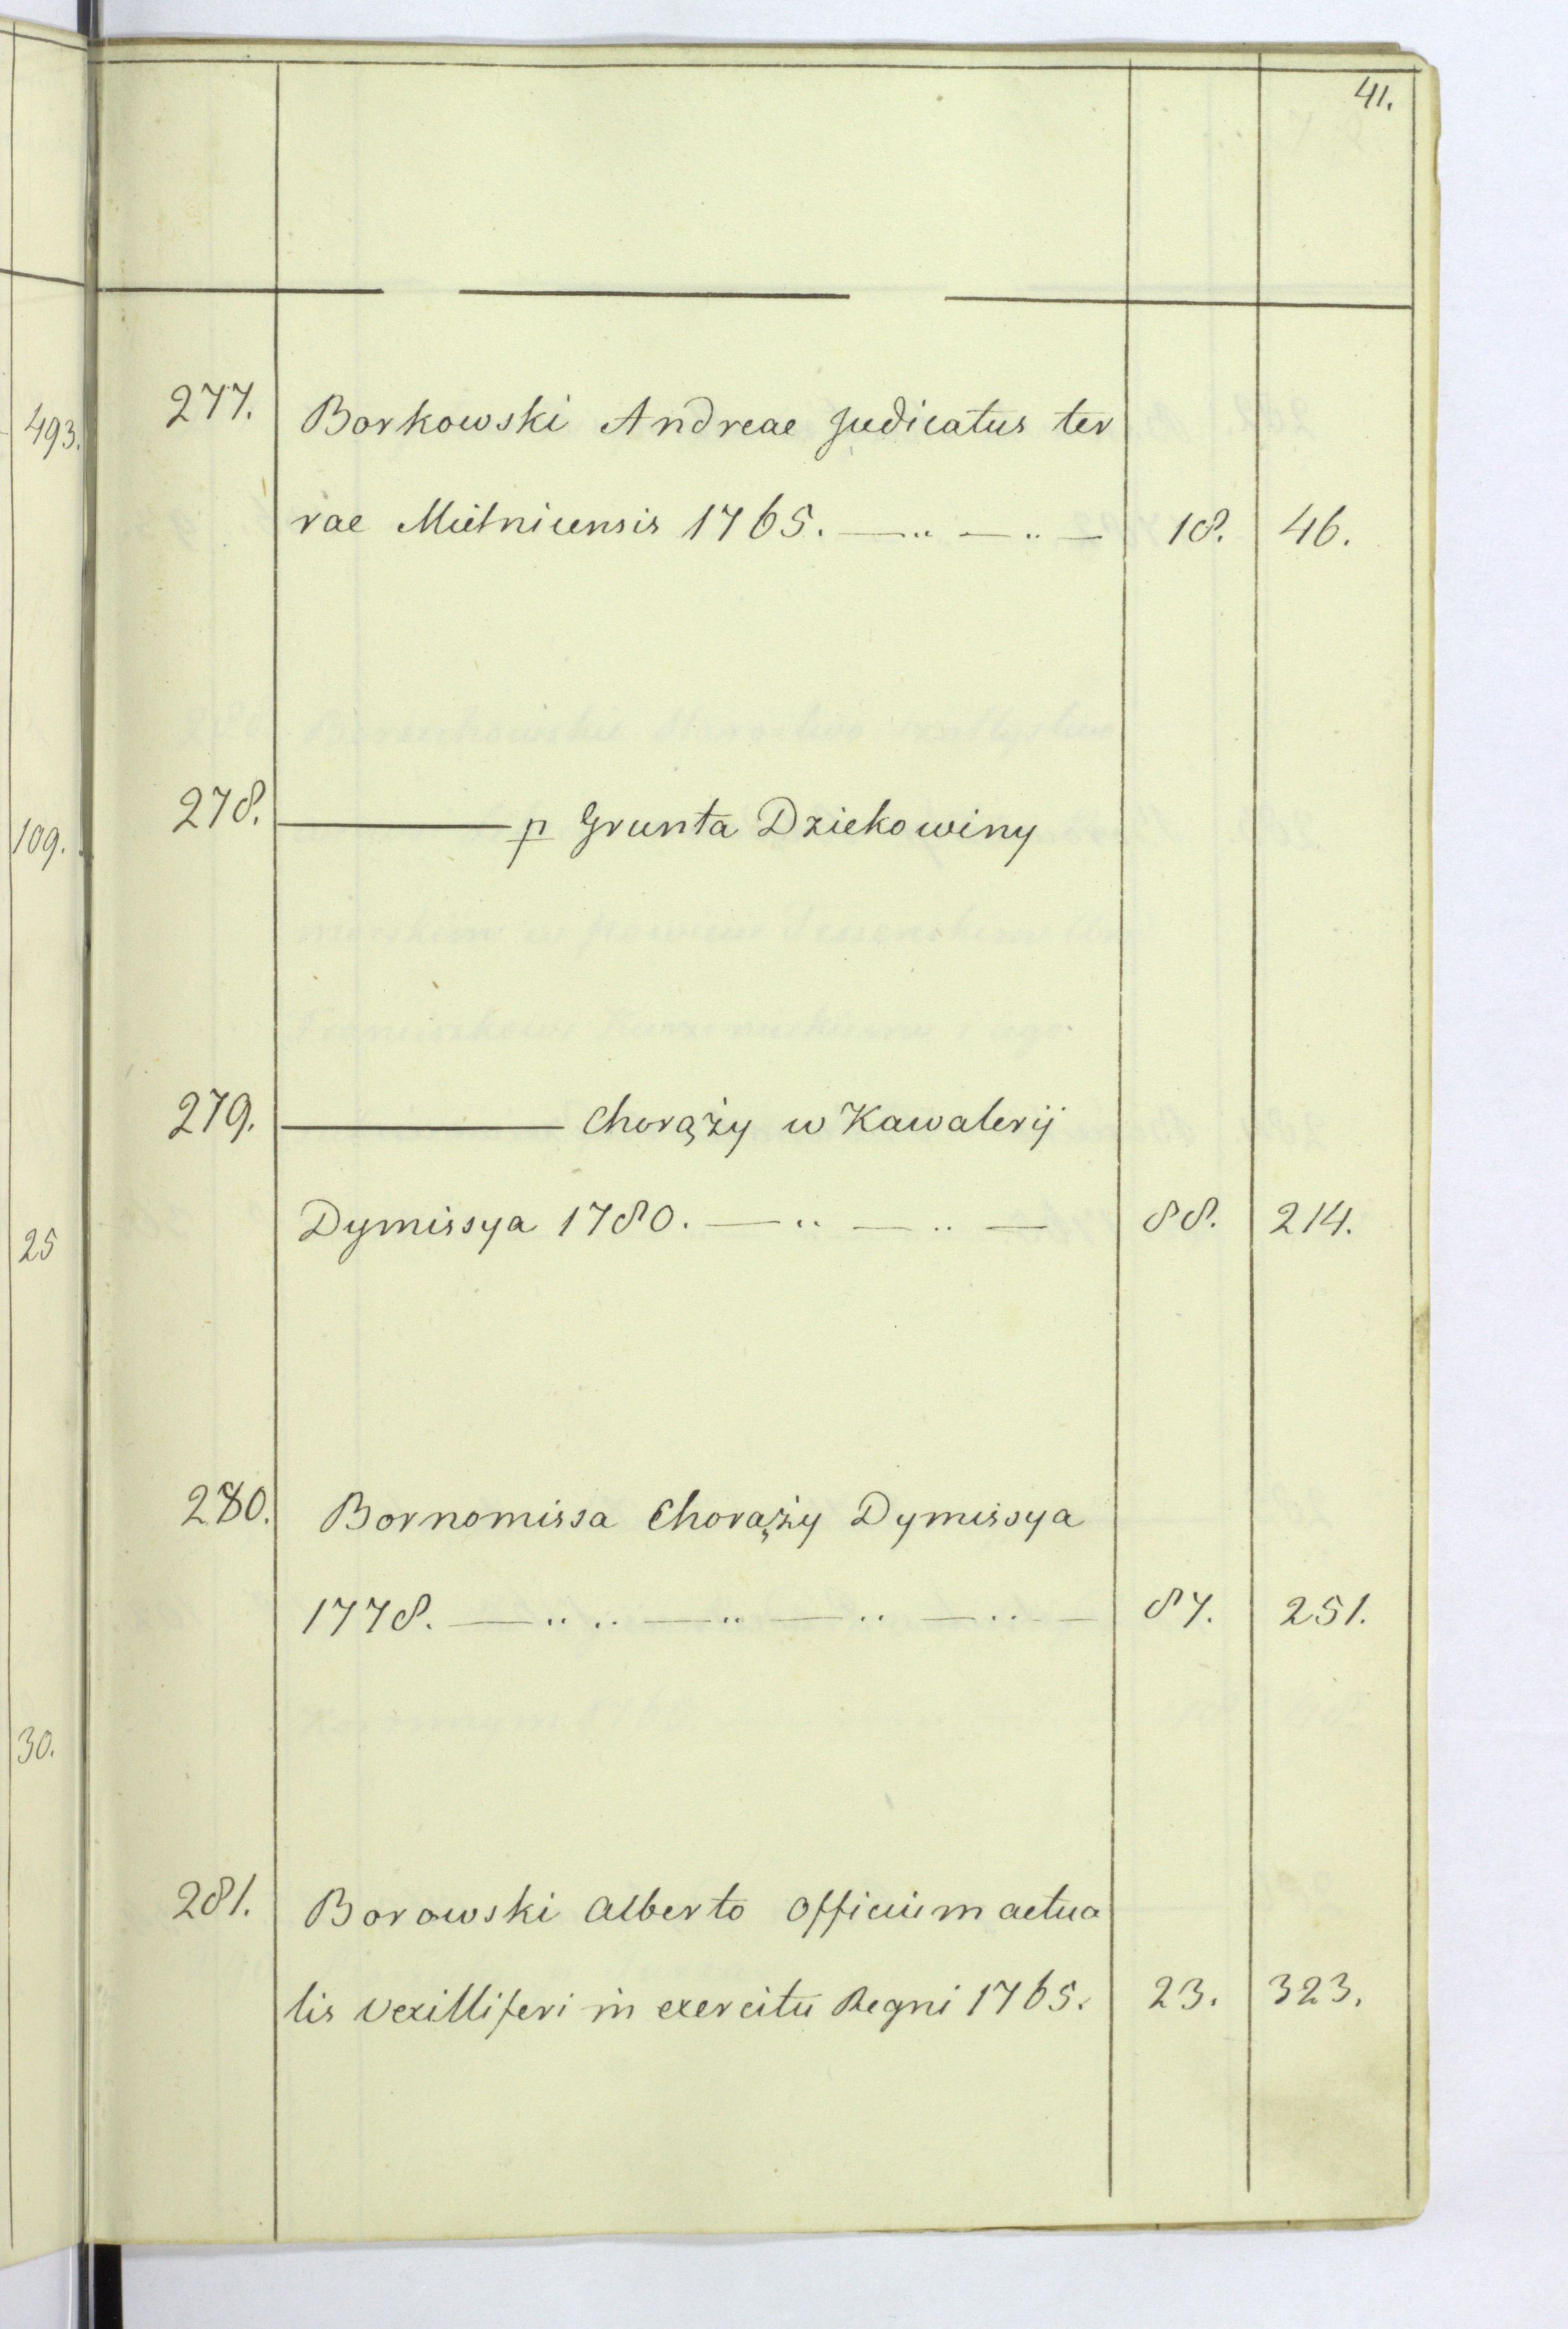 41.
493.
277. Borkowski Andreae Judicatus ter
rae Mielnicensis 1765. —..—..— 18. 46.
109.
278. ——— p Grunta Dziekowiny
279. ——— Chorąży w Kawaleryj
Dymissya 1780. —..—..— 88. 214.
25
280. Bornomissa Chorąży Dymissya
1778. —.. ..—..—..—..— 87. 251.
30.
281. Borowski Alberto Officium actua
lis Vexilliferi in exercitu Regni 1765. 23. 323.